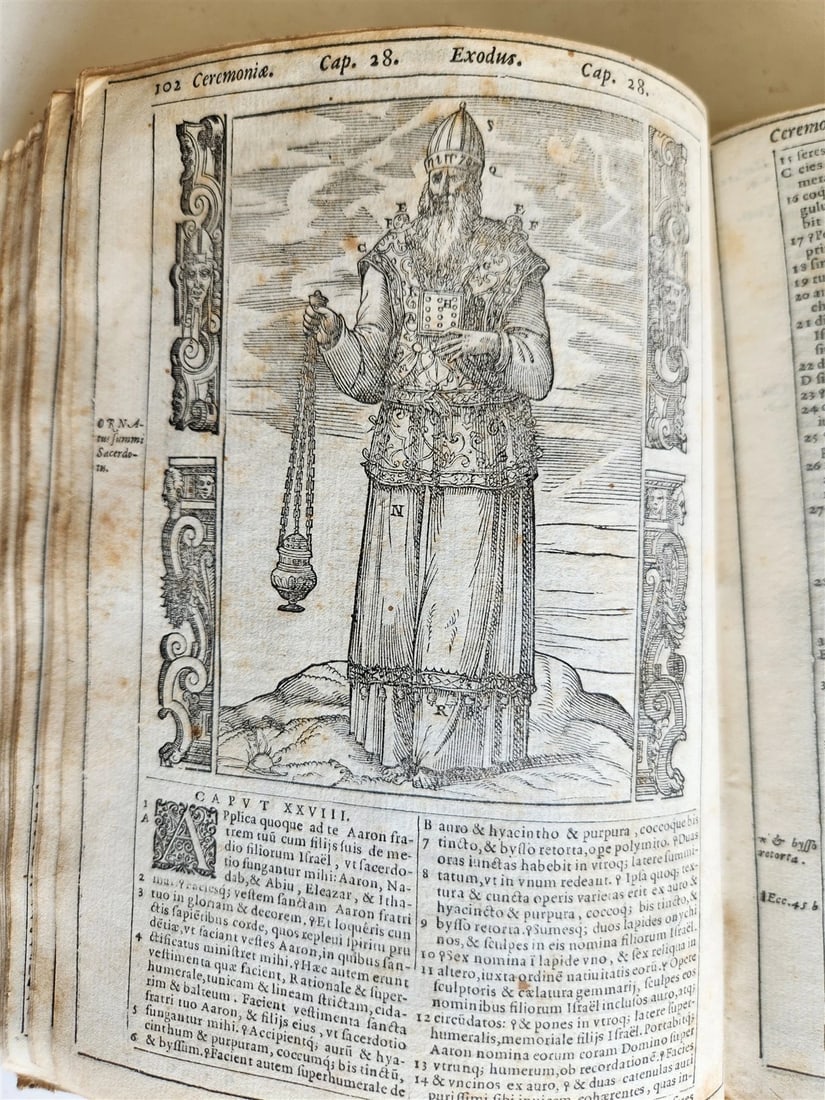 102 Ceremoniæ. Cap. 28. Exodus. Cap. 28.
S
Q
E E
F F
C
I H
N
R
ORNA-
tus summi
Sacerdo-
tis.
CAPVT XXVIII.
1 APplica quoque ad te Aaron fra-
A trem tuū cum filijs suis de me-
dio filiorum Israël, vt sacerdo-
tio fungantur mihi: Aaron, Na-
dab, & Abiu, Eleazar, & Itha-
2 mar. ♀Faciesq; vestem sanctam Aaron fratri
3 tuo in gloriam & decorem. ♀Et loquêris cun
ctis sapiētibus corde, quos repleui spiritu pru
dētiæ, vt faciant vestes Aaron, in quibus san-
4 ctificatus ministret mihi. ♀Hæc autem erunt
vestimenta quæ facient, Rationale & super-
humerale, tunicam & lineam strictam, cida-
rim & balteum. Facient vestimenta sancta
fratri tuo Aaron, & filijs eius, vt sacerdotio
5 fungantur mihi. ♀Accipientq; aurū & hya-
cinthum & purpuram, coccumq; bis tinctū,
6 & byssum. ♀Facient autem superhumerale de
B auro & hyacintho & purpura, coccoque bis
7 tincto, & bysso retorta, ope polymito. ♀Duas
oras iunctas habebit in vtroq; latere summi-
8 tatum, vt in vnum redeant. ♀Ipsa quoq; tex-
tura & cuncta operis varietas erit ex auro &
hyacincto & purpura, coccoq; bis tincto, &
9 bysso retorta. ♀Sumesq; duos lapides onychi
nos, & sculpes in eis nomina filiorum Israël.
10 ♀Sex nomina ī lapide vno, & sex reliqua in
11 altero, iuxta ordinē natiuitatis eorū. ♀Opere
sculptoris & cælatura gemmarij, sculpes eos
nominibus filiorum Israël inclusos auro, atq;
12 circūdatos: ♀& pones in vtroq; latere super-
humeralis, memoriale filijs Israël. Portabitq;
Aaron nomina eorum coram Domino super
13 vtrunq; humerum, ob recordationē. ♀Facies
14 & vncinos ex auro, ♀ & duas catenulas auri
purissimi sibi inuicem cohærentes, quas in-
Ceremo
C
16
17
18
19
20
21
22
D
23
24
25
26
27
& bysso
retorta.
Ecc. 45 b